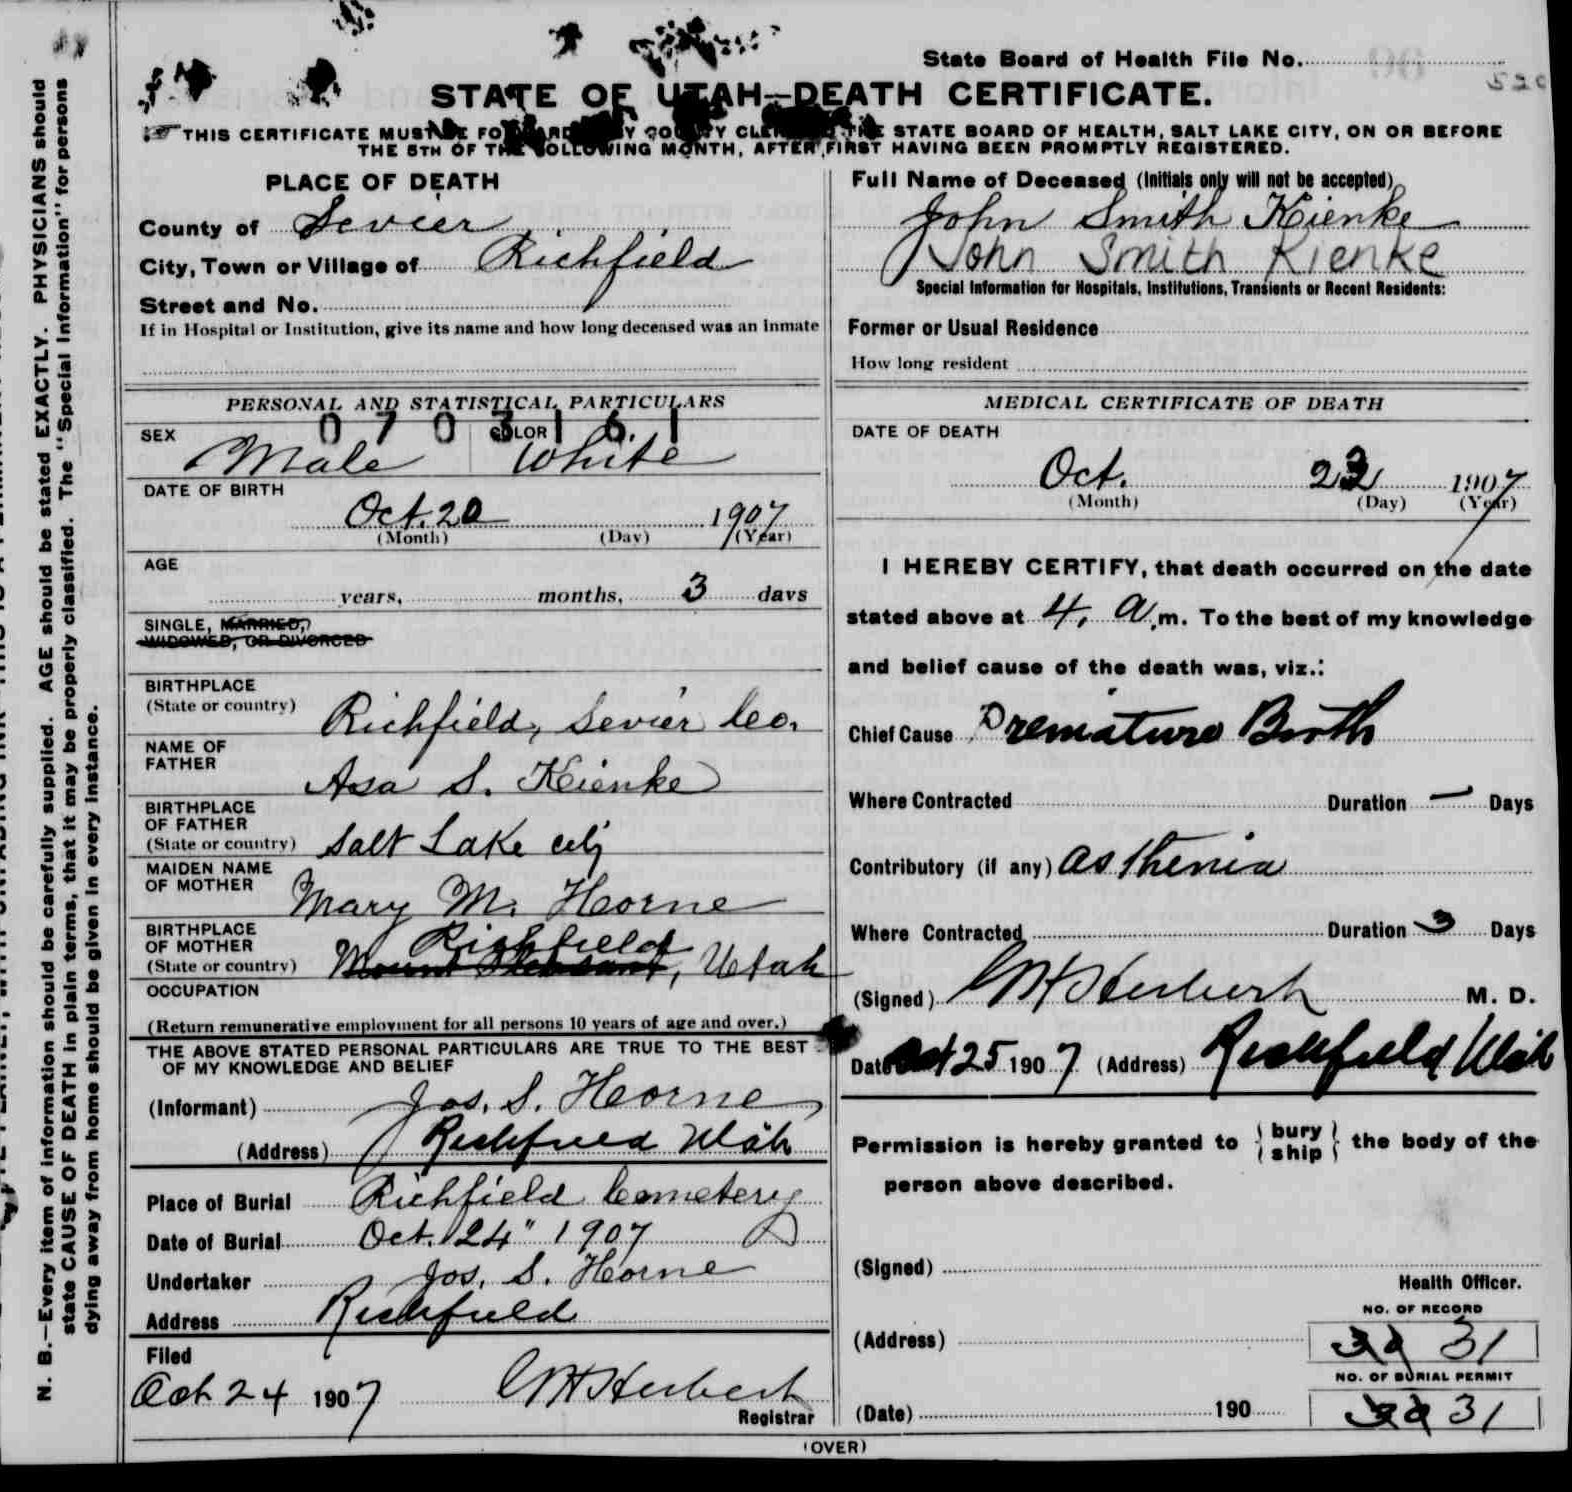 State Board of Health File No.
STATE OF UTAH—DEATH CERTIFICATE.
THIS CERTIFICATE MUST BE FORWARDED BY COUNTY CLERK TO THE STATE BOARD OF HEALTH, SALT LAKE CITY, ON OR BEFORE
THE 5TH OF THE FOLLOWING MONTH, AFTER FIRST HAVING BEEN PROMPTLY REGISTERED.
PLACE OF DEATH
County of Sevier
City, Town or Village of Richfield
Street and No.
If in Hospital or Institution, give its name and how long deceased was an inmate
Full Name of Deceased (Initials only will not be accepted)
John Smith Kienke
John Smith Kienke
Special Information for Hospitals, Institutions, Transients or Recent Residents:
Former or Usual Residence
How long resident
PERSONAL AND STATISTICAL PARTICULARS
0 7 0 3 1 6 1
SEX Male COLOR White
DATE OF BIRTH
Oct. 20 1907
(Month) (Day) (Year)
AGE
years, months, 3 days
SINGLE, MARRIED,
WIDOWED, OR DIVORCED
BIRTHPLACE
(State or country) Richfield, Sevier Co.
NAME OF
FATHER Asa S. Kienke
BIRTHPLACE
OF FATHER
(State or country) Salt Lake City
MAIDEN NAME
OF MOTHER Mary M. Horne
BIRTHPLACE
OF MOTHER Richfield
(State or country) Mount Pleasant, Utah
OCCUPATION
(Return remunerative employment for all persons 10 years of age and over.)
THE ABOVE STATED PERSONAL PARTICULARS ARE TRUE TO THE BEST
OF MY KNOWLEDGE AND BELIEF
(Informant) Jos. S. Horne
(Address) Richfield Utah
Place of Burial Richfield Cemetery
Date of Burial Oct. 24" 1907
Undertaker Jos. S. Horne
Address Richfield
Filed
Oct 24 1907 Herbert
Registrar
MEDICAL CERTIFICATE OF DEATH
DATE OF DEATH
Oct. 23 1907
(Month) (Day) (Year)
I HEREBY CERTIFY, that death occurred on the date
stated above at 4, a.m. To the best of my knowledge
and belief cause of the death was, viz.:
Chief Cause Premature Birth
Where Contracted Duration — Days
Contributory (if any) asthenia
Where Contracted Duration 3 Days
(Signed) Herbert M. D.
Date Oct 25 1907 (Address) Richfield Utah
Permission is hereby granted to { bury ship } the body of the
person above described.
(Signed)
Health Officer.
NO. OF RECORD
(Address) 31
NO. OF BURIAL PERMIT
(Date) 190 31
(OVER)
N. B.—Every item of information should be carefully supplied. AGE should be stated EXACTLY. PHYSICIANS should
state CAUSE OF DEATH in plain terms, that it may be properly classified. The "Special Information" for persons
dying away from home should be given in every instance.